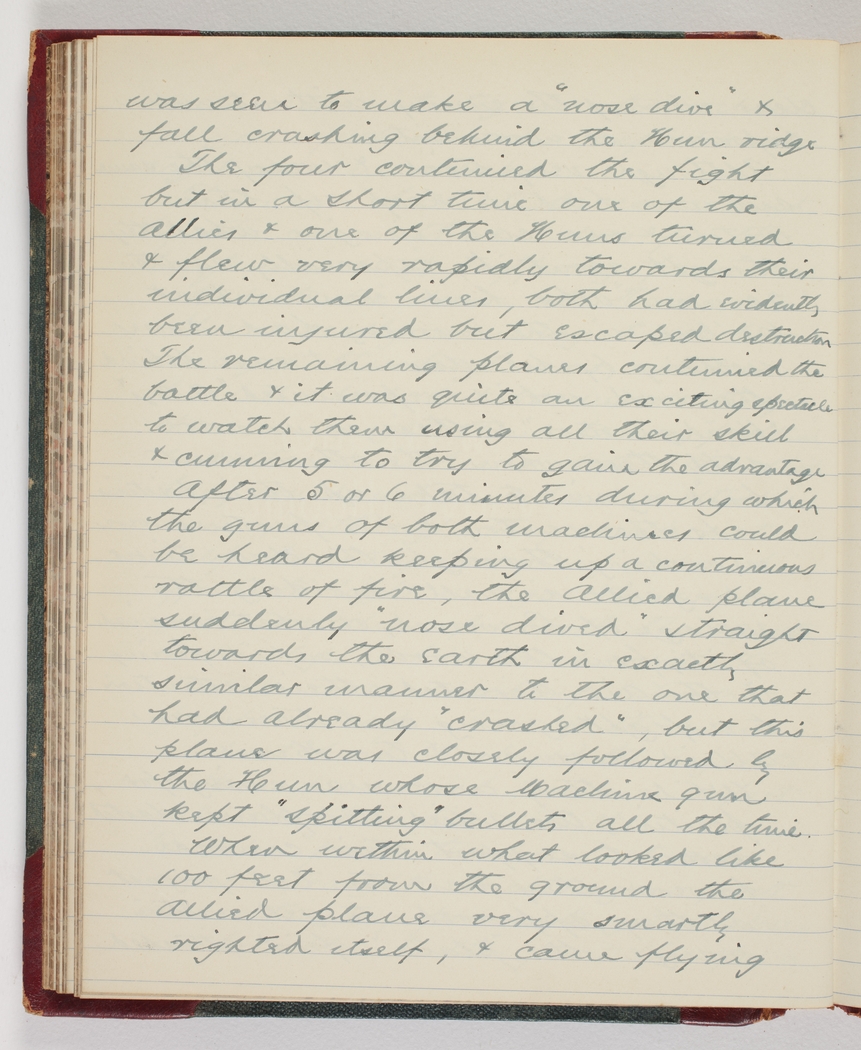 was seen to make a "nose dive" &
fall crashing behind the Hun ridge
The four continued the fight
but in a short time one of the
Allies & one of the Huns turned
& flew very rapidly towards their
individual lines, both had evidently
been injured but escaped destruction
The remaining planes continued the
battle & it was quite an exciting spectacle
to watch them using all their skill
& cunning to try to gain the advantage
After 5 or 6 minutes during which
the guns of both machines could
be heard keeping up a continuous
rattle of fire, the Allied plane
suddenly "nose dived" straight
towards the Earth in exactly
similar manner to the one that
had already "crashed", but this
plane was closely followed by
the Hun whose Machine gun
kept "spitting" bullets all the time.
When within what looked like
100 feet from the ground the
Allied plane very smartly
righted itself, & came flying